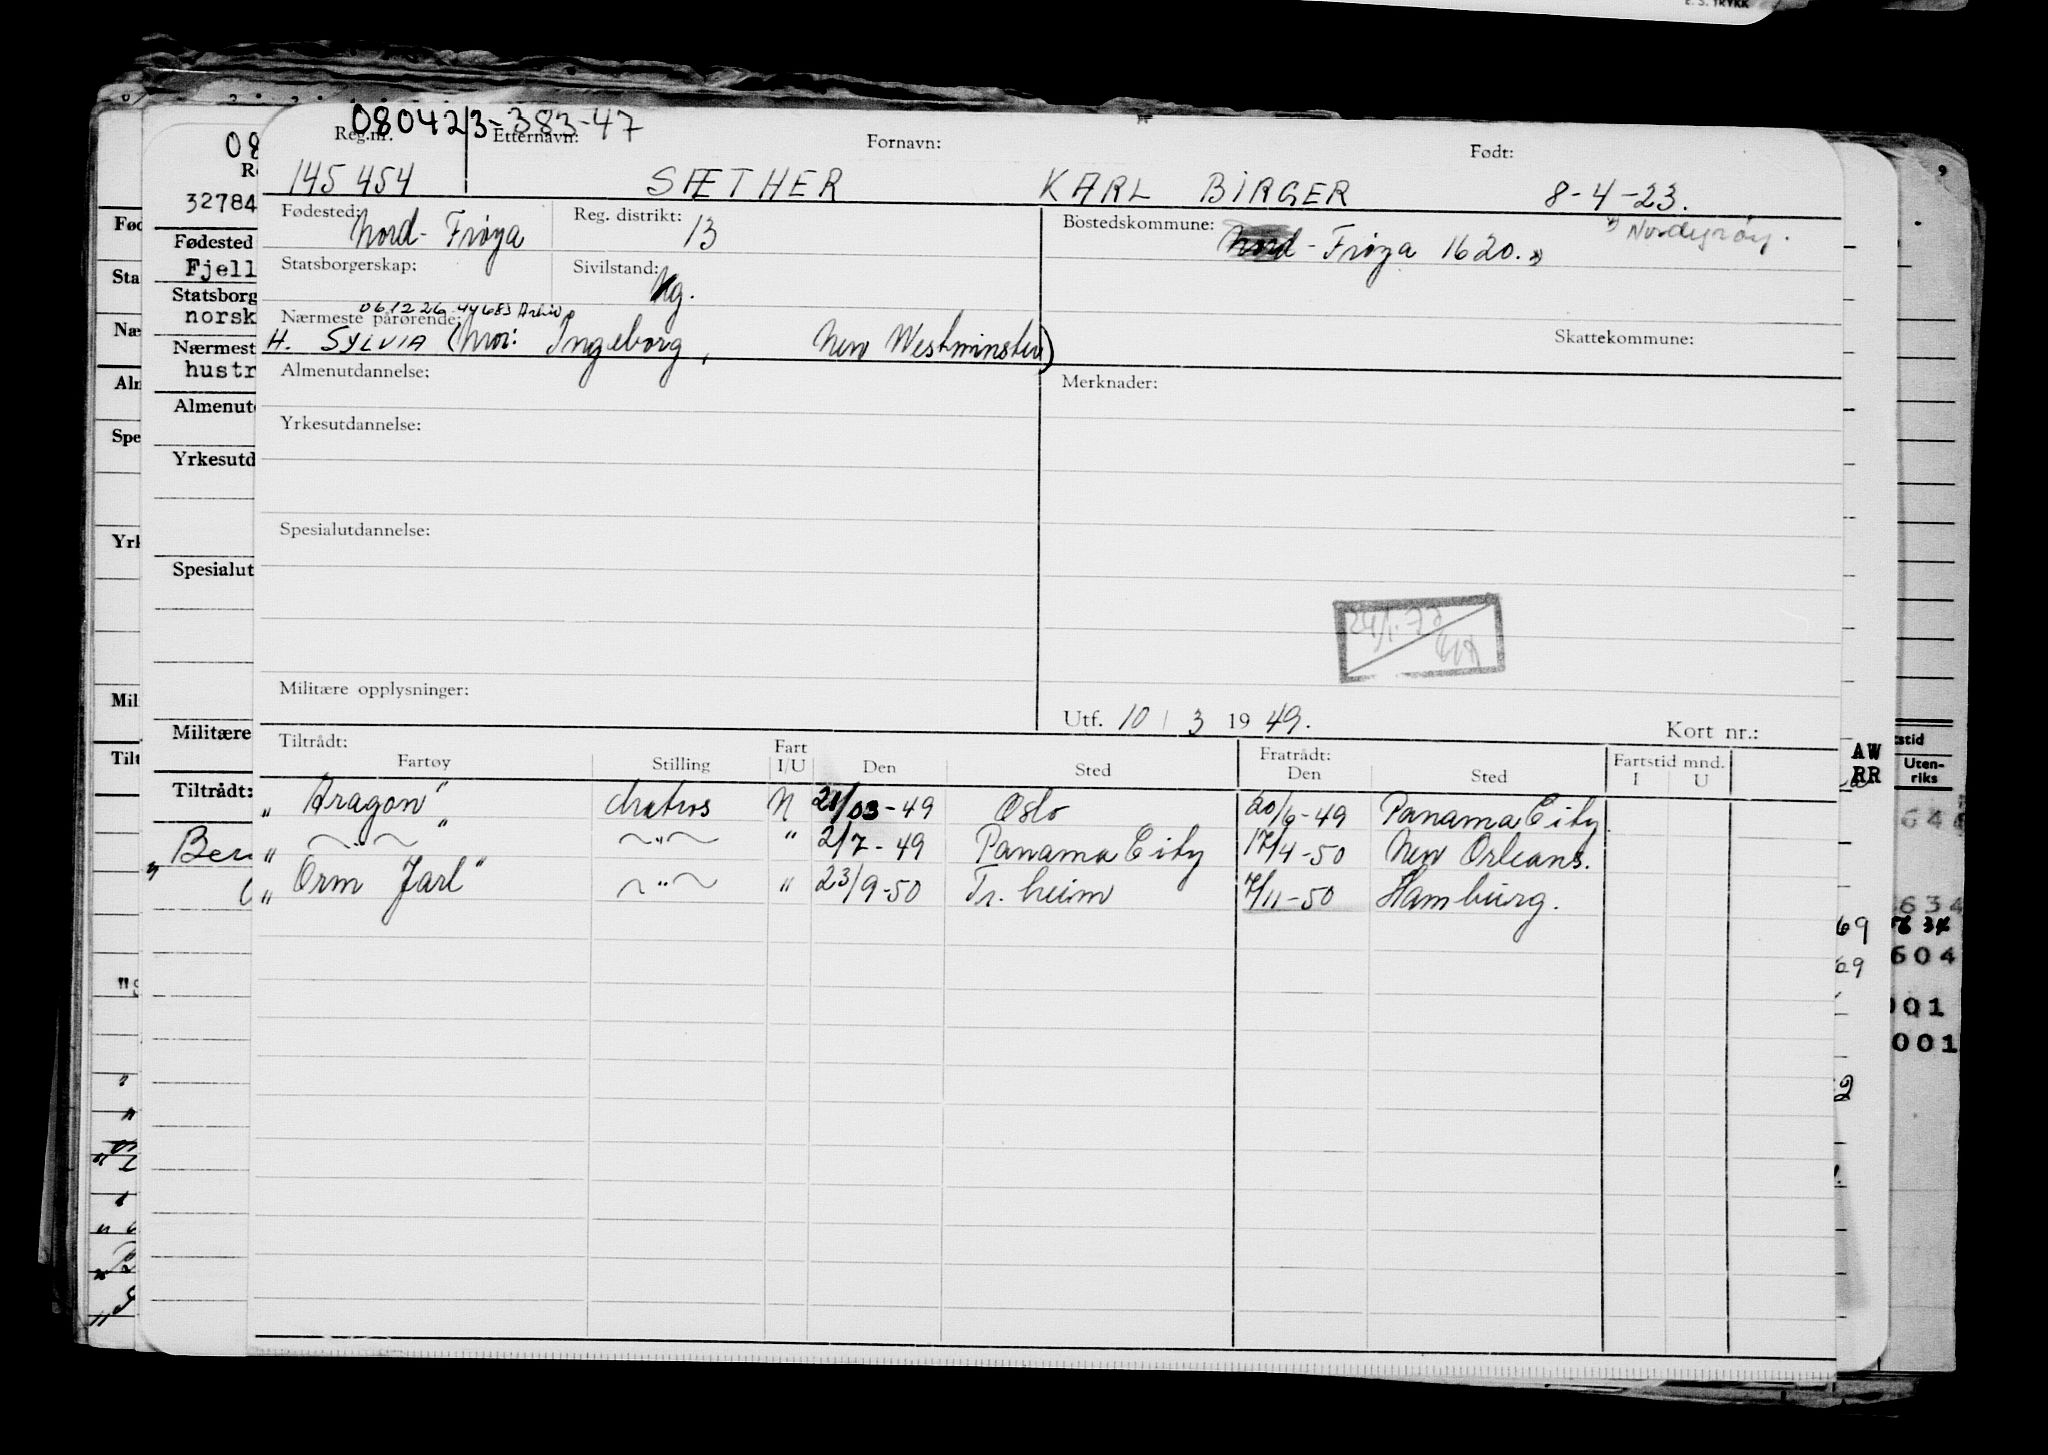 E. S. TRYKK
080423-383-47
Reg.nr. Etternavn: Fornavn: Født:
145454 SÆTHER KARL BIRGER 8-4-23.
Fødested: Nord-Frøya Reg. distrikt: 13 Bostedskommune: Nord-Frøya 1620.
Statsborgerskap: Sivilstand: Ug.
061226-44683
Nærmeste pårørende:
H. SYLVIA (Mor: Ingeborg, New Westminster) Skattekommune:
Almenutdannelse: Merknader:
Yrkesutdannelse:
Spesialutdannelse:
Militære opplysninger:
Utf. 10 / 3 1949. Kort nr.:
Tiltrådt: Fart Fratrådt: Fartstid mnd.
Fartøy Stilling I/U Den Sted Den Sted I U
"Aragon" Matros N 21/03-49 Oslo 20/6-49 Panama City
" — " — " — " — " 2/7-49 Panama City 17/4-50 New Orleans.
"Orm Jarl" — " — " 23/9-50 Tr.heim 7/11-50 Hamburg.
08
32784
Fødested
Fjell
Statsborg
norsk
Nærmest
hustr
Almenut
Yrkesutd
Spesialut
Militære
Tiltrådt:
Fød
Sta
Næ
Spe
Mil
AW
RR
Uten-
riks
69
69
634
604
001
001